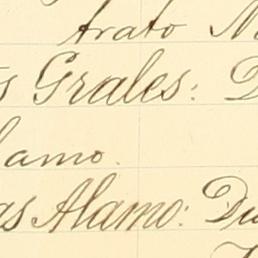 trato
s Grales:
lamo.
as Alamo: Du